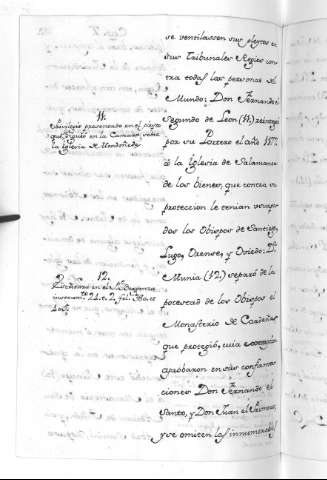 se ventilassen sus pleytos en
sus Tribunales Regios con-
tra todas las personas del
Mundo: Don Fernando el
Segundo de Leon (11.) reintegró
por su Decreto el año 1177.
á la Iglesia de Salamanca
de los bienes, que contra su
proteccion le tenian usurpa-
dos los Obispos de Santiago,
Lugo, Orense, y Oviedo: D.ª
Munia (12.) separó de la
potestad de los Obispos el
Monasterio de
que protegió, cuia
aprobaron en sus confirma-
ciones Don Fernando el
Santo, y Don Juan el Primero,
y se omiten las innumerables
11.
Privilegio presentado en el pleyto
que siguió en la Camara sobre
la Iglesia de Mondoñedo.
12.